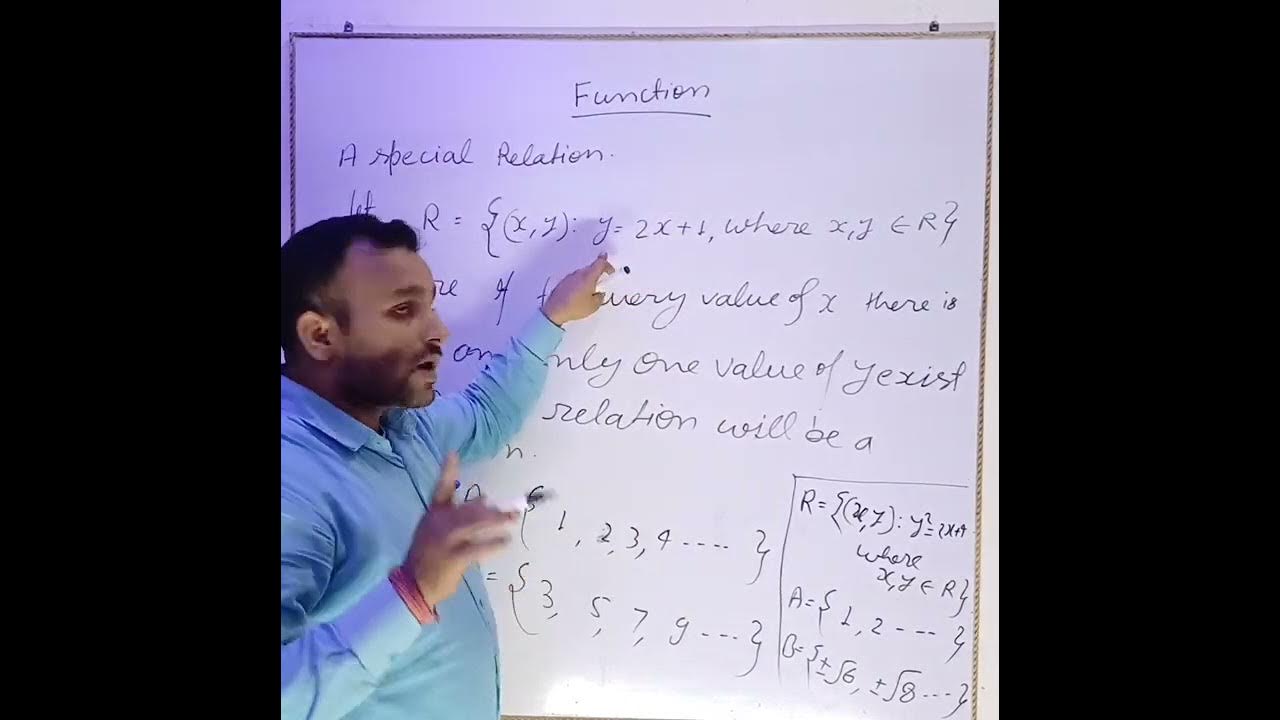 Function
A special Relation.
let R = {(x, y): y = 2x+1, where x,y ∈ R}
if every value of x there is
only one value of y exist
relation will be a
n.
A {1, 2, 3, 4 ....}
= {3, 5, 7, 9 ...}
R = {(x, y): y²=2x+4
where
x,y ∈ R}
A = {1, 2 - - - }
B = {±√6, ±√8 ...}